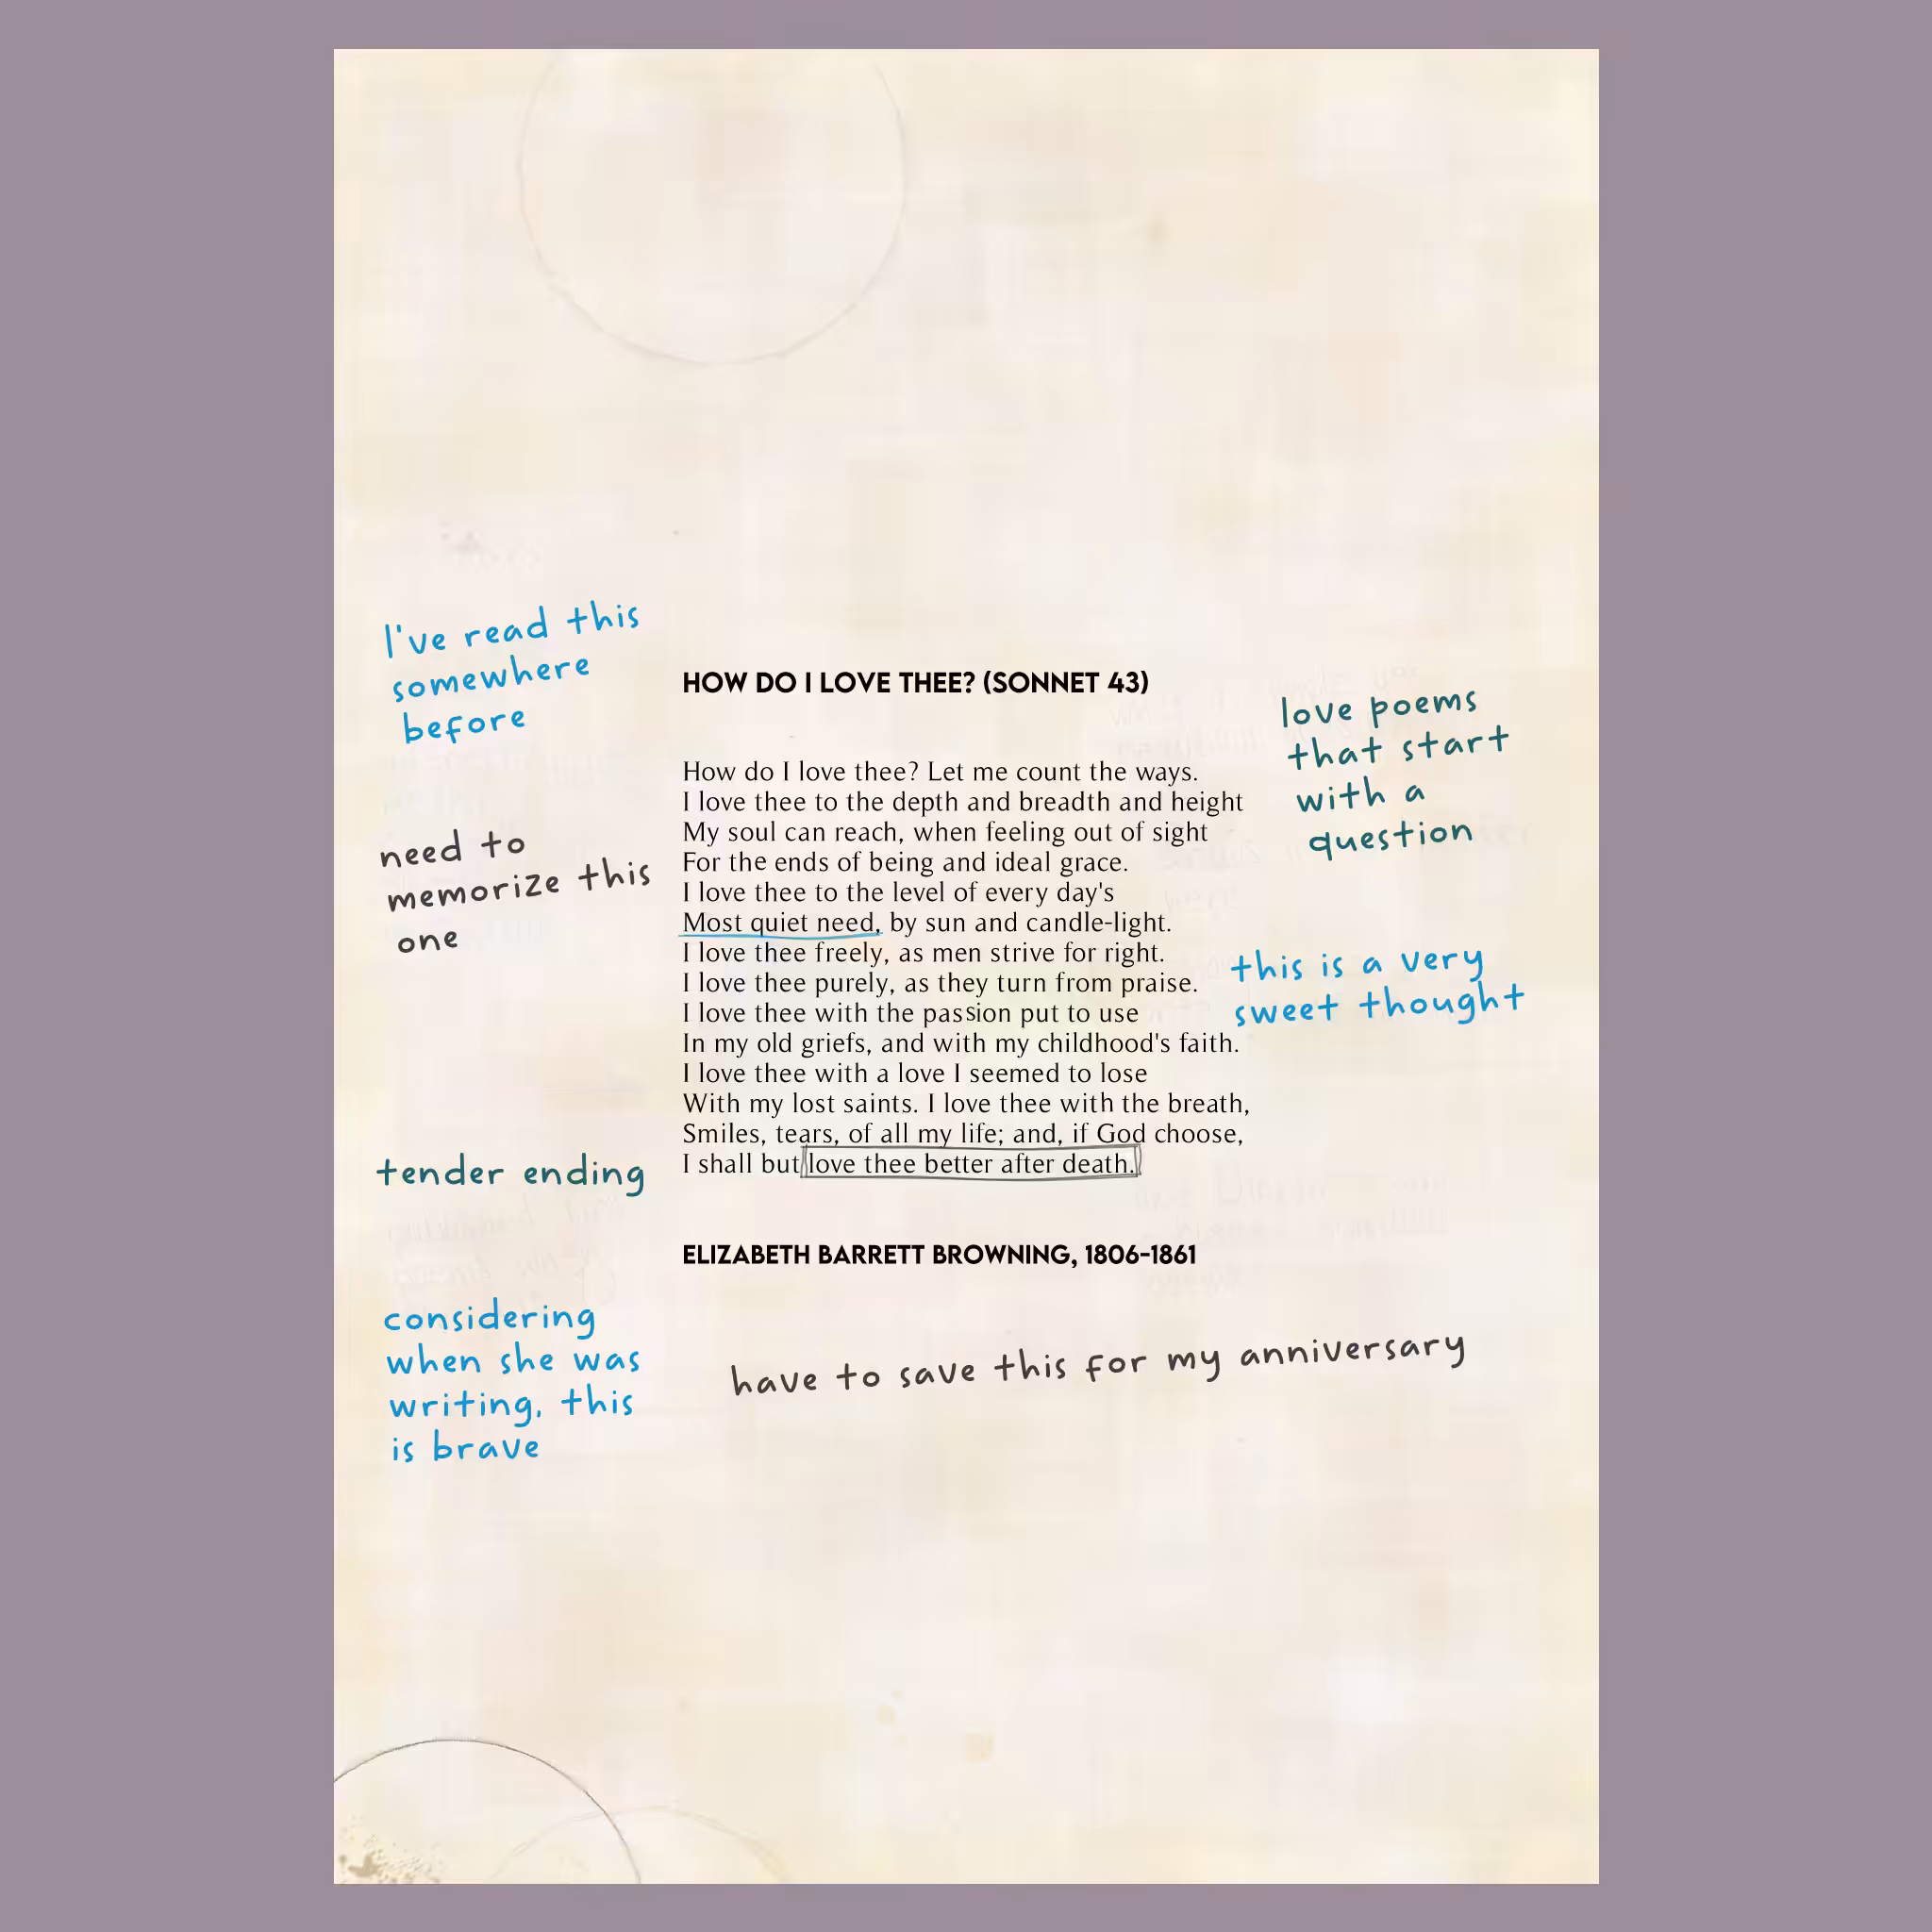 I've read this
somewhere
before
HOW DO I LOVE THEE? (SONNET 43)
love poems
that start
with a
question
How do I love thee? Let me count the ways.
I love thee to the depth and breadth and height
My soul can reach, when feeling out of sight
For the ends of being and ideal grace.
I love thee to the level of every day's
Most quiet need, by sun and candle-light.
I love thee freely, as men strive for right.
I love thee purely, as they turn from praise.
I love thee with the passion put to use
In my old griefs, and with my childhood's faith.
I love thee with a love I seemed to lose
With my lost saints. I love thee with the breath,
Smiles, tears, of all my life; and, if God choose,
I shall but love thee better after death.
need to
memorize this
one
this is a very
sweet thought
tender ending
ELIZABETH BARRETT BROWNING, 1806-1861
considering
when she was
writing, this
is brave
have to save this for my anniversary